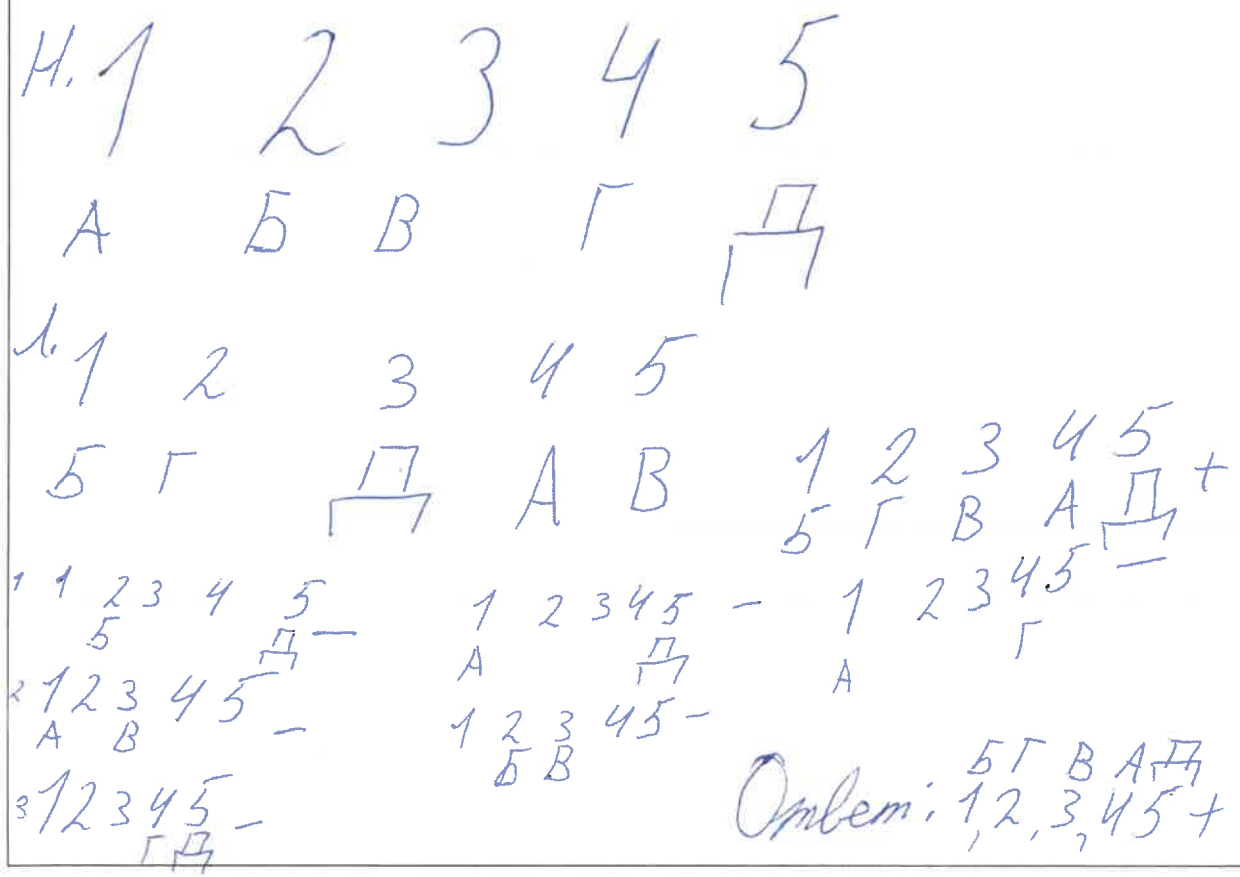 Н. 1 2 3 4 5
А Б В Г Д
Л. 1 2 3 4 5
Б Г Д А В
1 2 3 4 5 +
Б Г В А Д
1 1 2 3 4 5 —
Б Д
1 2 3 4 5 —
А Д
1 2 3 4 5 —
А Г
2 1 2 3 4 5 —
А В
1 2 3 4 5 —
Б В
3 1 2 3 4 5 —
Г Д
Б Г В А Д
Ответ: 1, 2, 3, 4 5 +